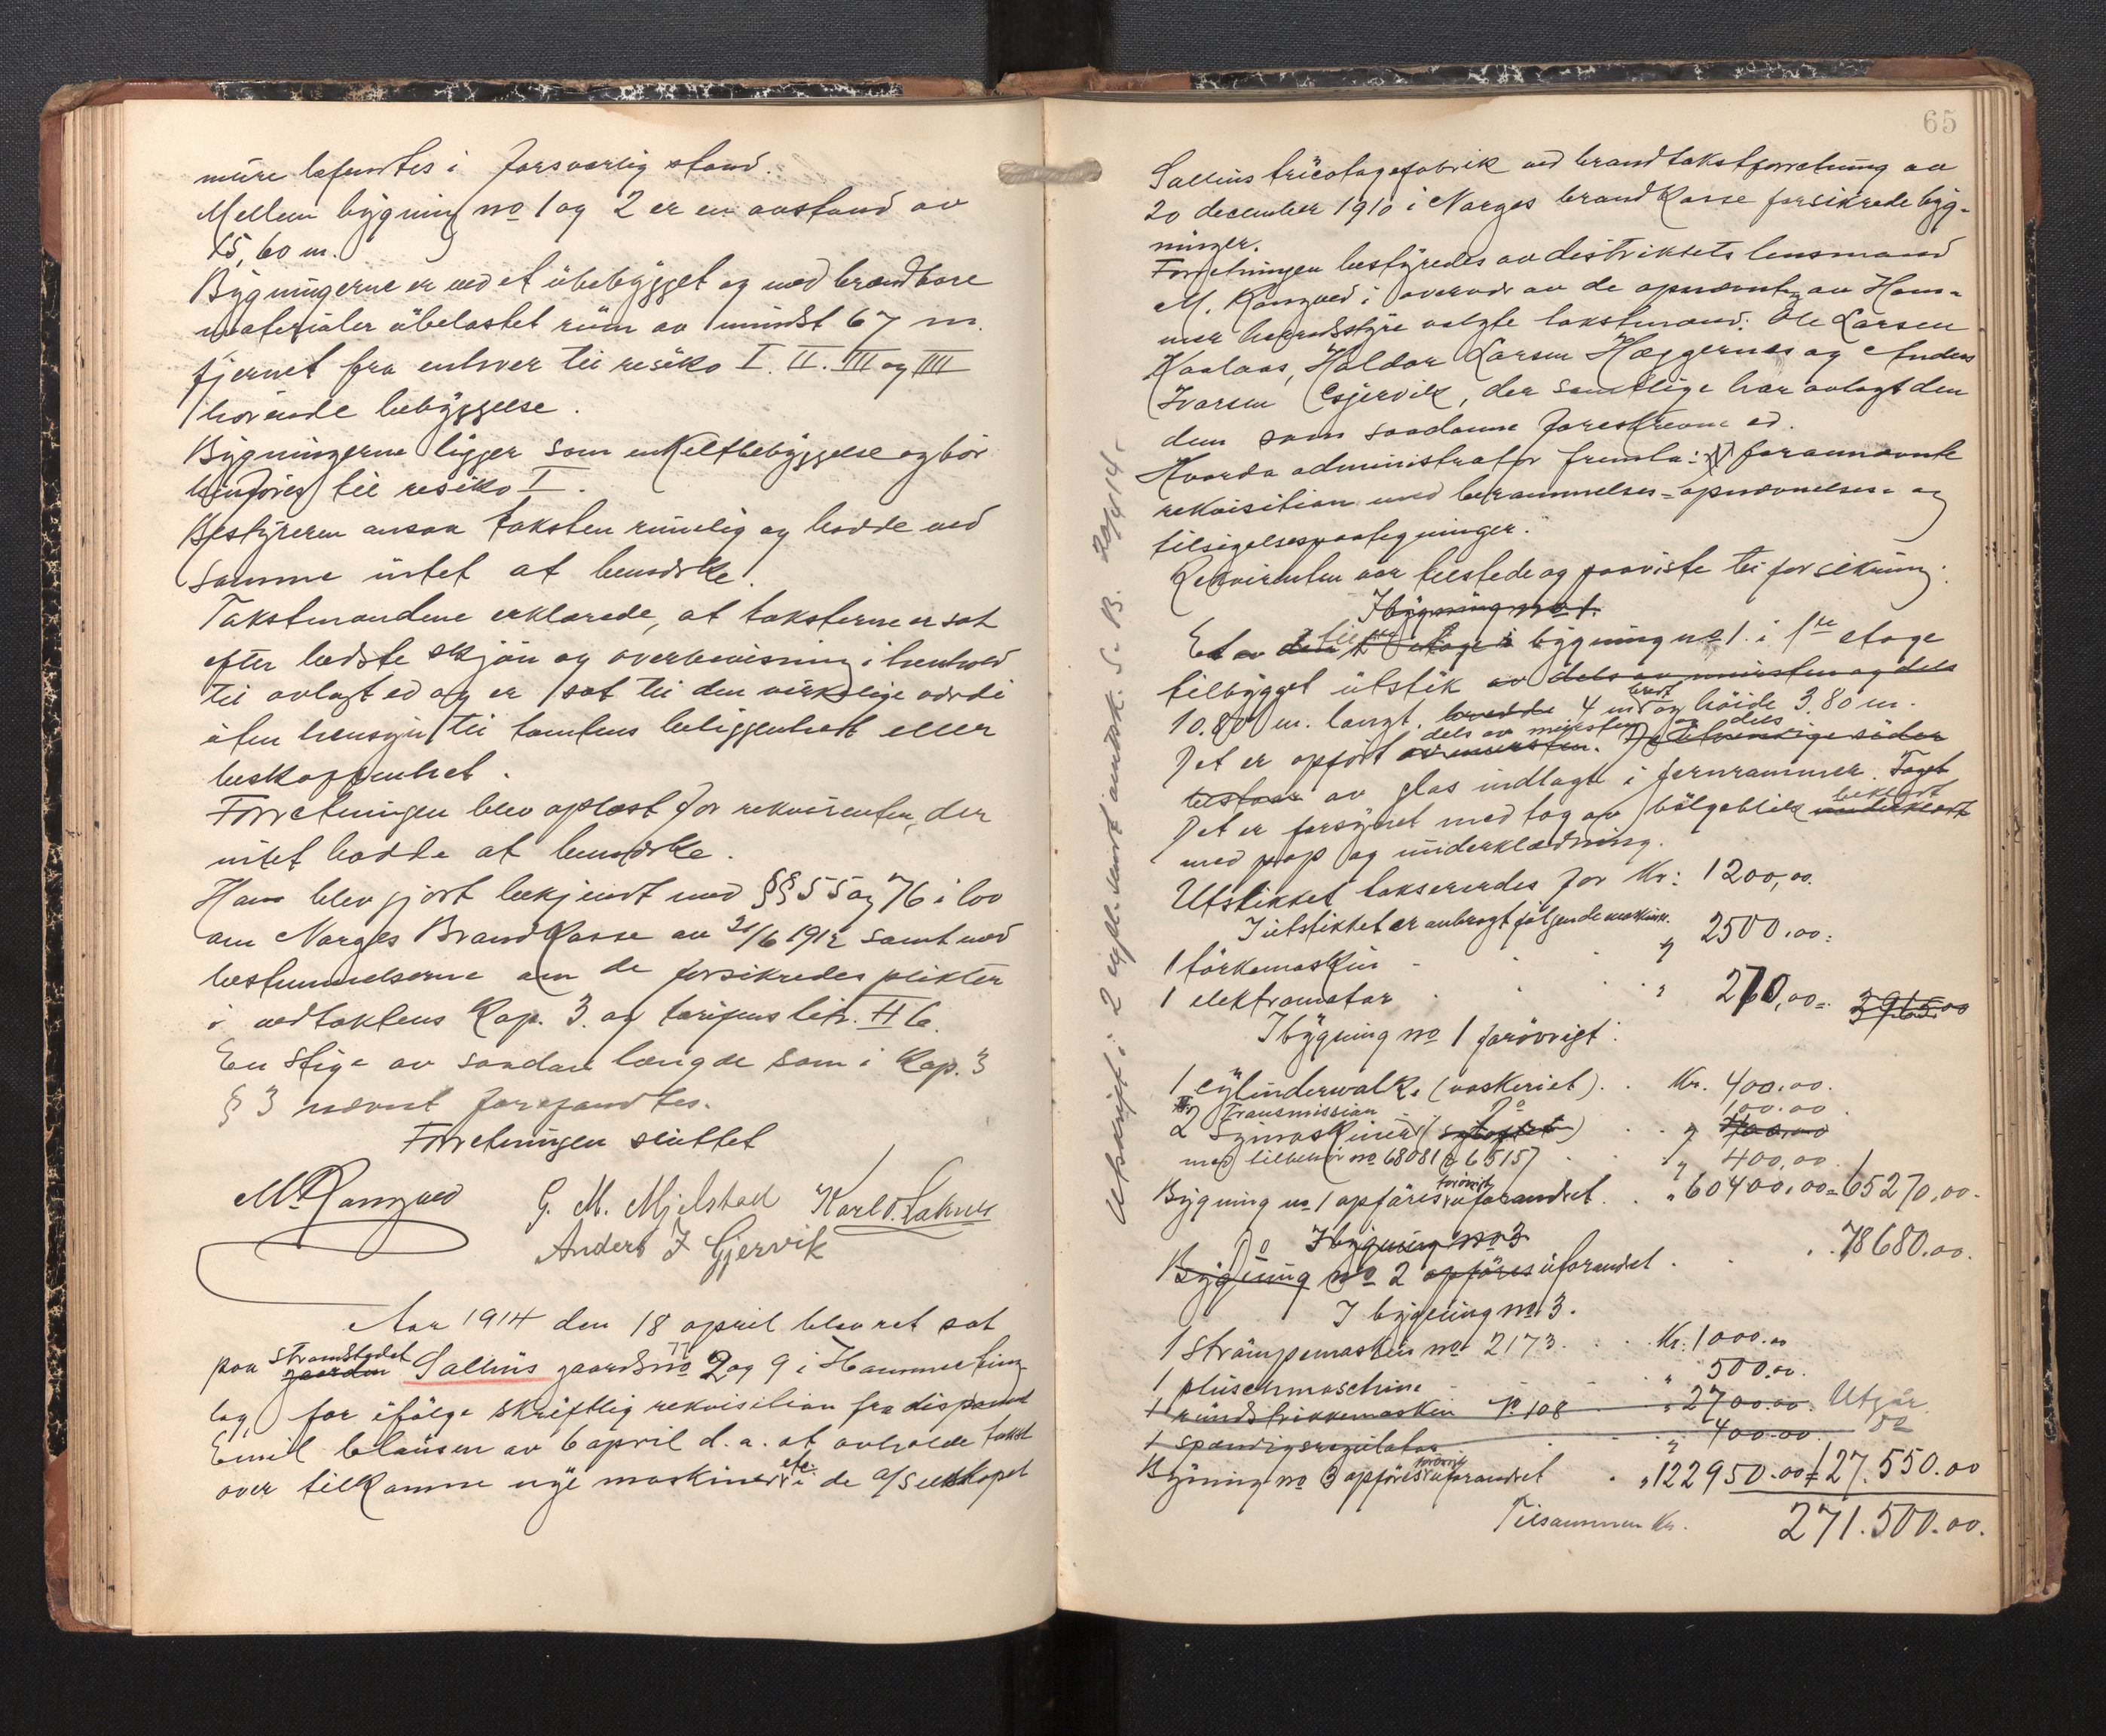 mure befandtes i forsvarlig stand.
Mellem bygning no 1 og 2 er en avstand av
15,60 m.
Bygningerne er ved et ubebygget og med brændbare
materialer ubelastet rum av mindst 67 m.
fjernet fra enhver til resiko I. II. III og IIII
hörende bebyggelse.
Bygningerne ligger som enkeltbebyggelse og bör
henföres til resiko I.
Bestyreren ansaa taksten rimelig og hadde ved
samme intet at bemærke.
Takstmændene erklærede, at taksterne er sat
efter bedste skjön og overbevisning i henhold
til avlagt ed og er sat til den virkelige værdi
uten hensyn til tomtens beliggenhet eller
beskaffenhet.
Forretningen blev oplæst for rekvirenten, der
intet hadde at bemærke.
Han blev gjort bekjendt med §§ 55 og 76 i lov
om Norges Brandkasse av 21/6 1912 samt med
bestemmelserne om de forsikredes plikter
i vedtektens Kap. 3. og tarifens litr. H 6.
En Stige av saadan længde som i Kap. 3
§ 3 nævnt forefandtes.
Forretningen sluttet
M. Ramzved G. M. Mjelstad Karl O.
Anders I Gjervik
Aar 1914 den 18 april blev ret sat
paa Strømstedet gaarden Salhus gaardsno 2 og 9 i Hammer ting
lag, for ifölge skriftlig rekvisition fra disponent
Emil Clausen av 6 april d. a. at avholde takst
over tilkomne nye maskiner etc. i de A/S selskapet
65
Salhus tricotagefabrik ved brandtakstforretning av
20 december 1910 i Norges brandkasse forsikrede byg-
ninger.
Forretningen bestyredes av distriktets lensmand
M. Ramzved i overvær av de opnævnte, av Ham-
mer herredsstyre valgte takstmænd: Ole Larsen
Kaalaas, Haldor Larsen Hæggernæs og Anders
Ivarsen Gjervik, der samtlige har avlagt den
dem som saadanne foreskrevne ed.
Hvorda administrator fremla: forannævnte
rekvisition med berammelses- opnævnelses- og
tilsigelsespaategninger.
Rekvirenten var tilstede og paaviste til forsikring:
I bygning no 1.
Et til bygning no 1. i 1ste etage
tilbygget utstik av dels av mursten og dels
10.80 m. langt, bredde 4 m bredt og höide 3.80 m.
Det er opfört av mursten. dels av mursten og dels De utvendige sider
bestaar av glas indlagt i jernrammer. Taget
Det er forsynet med tag av bölgeblik underklædt beklædt
med pap og underklædning.
Utstikket takseredes for Kr: 1200,00.
I utstikket er anbragt fölgende maskiner.
1 törkemaskin " 2500.00.
1 elektromotor " 270,00 = 3965.00
I bygning no 1 forövrigt:
1 cylinderwalke (vaskeriet) Kr. 400.00.
Transmission Do 100.00
2 Symaskiner (systuen) " 700.00
med tilbehör no 68081 & 65157 " 400,00
Bygning no 1 opföres forövrig uforandret " 60400,00 = 65270,00.
I bygning no 3
Do Bygning no 2 opföres uforandret 78680.00.
I bygning no 3.
1 Strömpemaskin no 2173 Kr. 1000.00
1 plüschmaschine " 500.00.
1 rundstrikkemaskin No 108 " 2700.00. Utgår
1 spændigsregulator " 400.00 Do
Bygning no 3 opföres forövrig uforandret " 122950.00 = 127.550.00
Tilsammen Kr. 271.500.00.
Utskrift i 2 expl. sendt amtsk. S. B. 20/4 14.